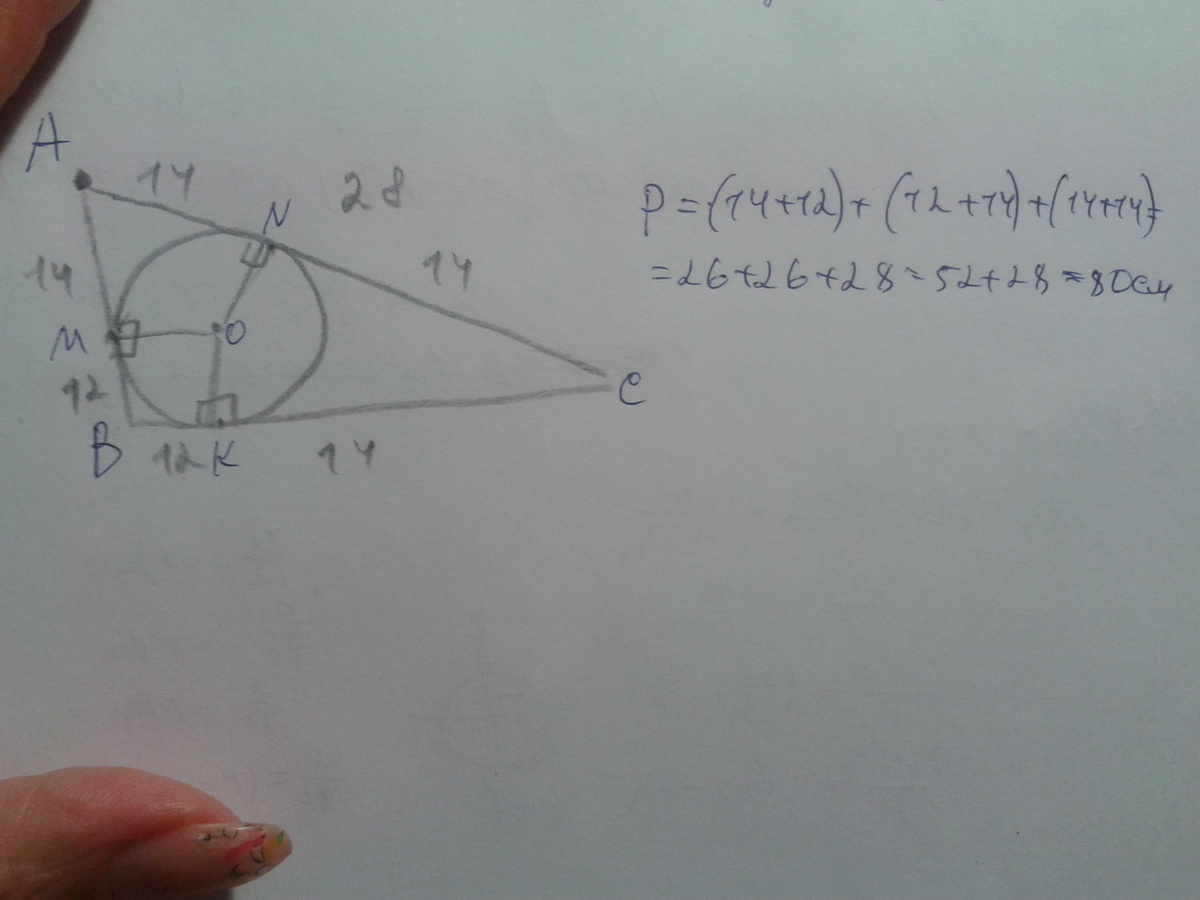 A
14
28
N
14
14
M
O
12
B
12
K
14
C
P = (14+12) + (12+14) + (14+14) =
= 26+26+28 = 52+28 = 80 см